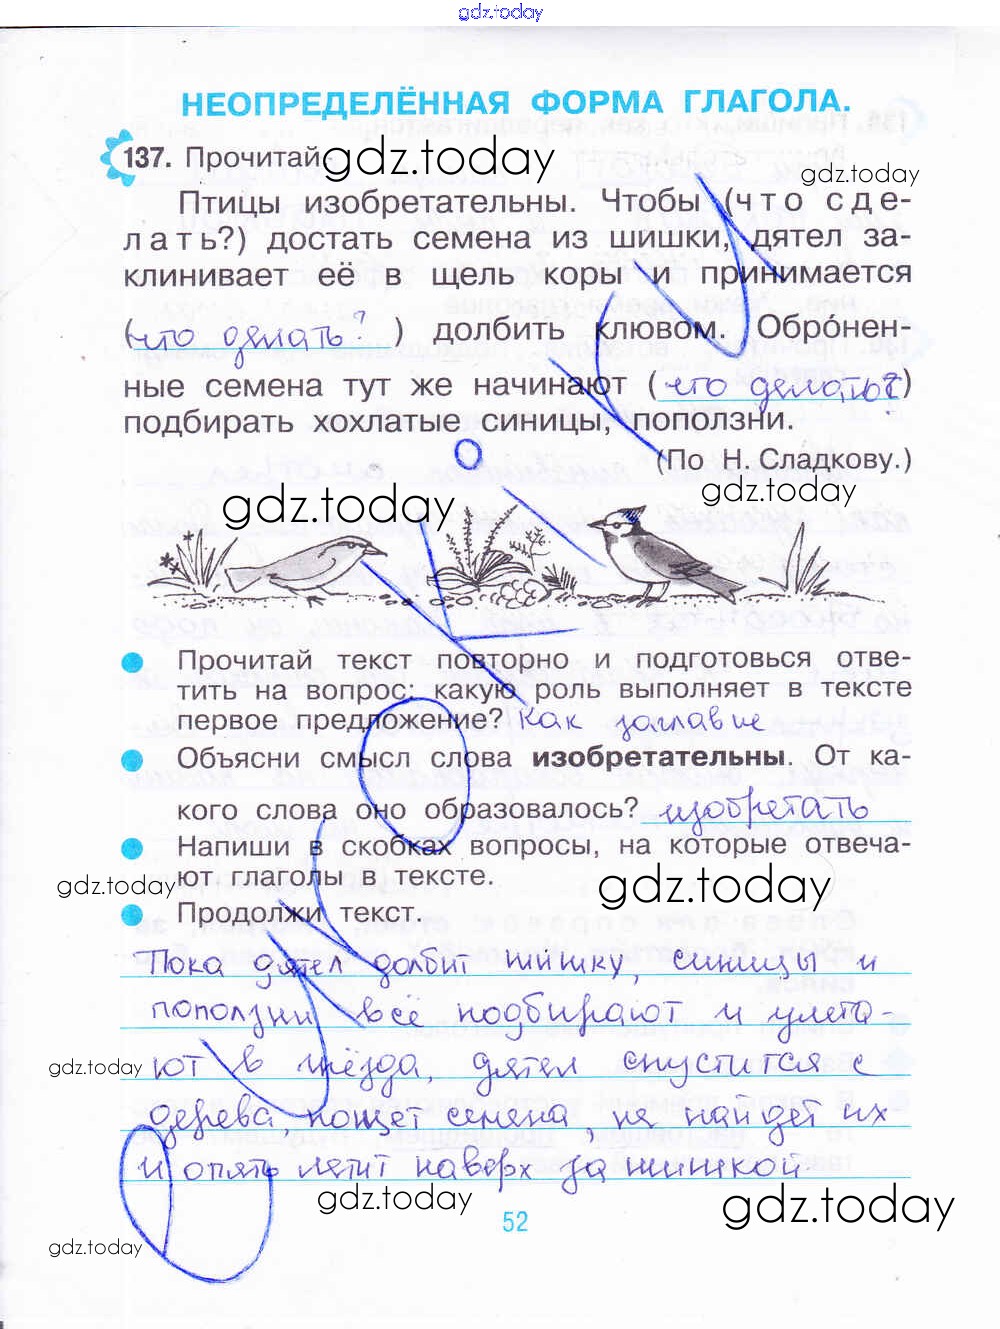 gdz.today
НЕОПРЕДЕЛЁННАЯ ФОРМА ГЛАГОЛА.
137. Прочитай. gdz.today
gdz.today
Птицы изобретательны. Чтобы (что сде-
лать?) достать семена из шишки, дятел за-
клинивает её в щель коры и принимается
(что делать? ) долбить клювом. Обро́нен-
ные семена тут же начинают (что делать?)
подбирать хохлатые синицы, поползни.
(По Н. Сладкову.)
gdz.today
gdz.today
Прочитай текст повторно и подготовься отве-
тить на вопрос: какую роль выполняет в тексте
первое предложение? Как заглавие
Объясни смысл слова изобретательны. От ка-
кого слова оно образовалось? изобретать
Напиши в скобках вопросы, на которые отвеча-
ют глаголы в тексте.
gdz.today
gdz.today
Продолжи текст.
Пока дятел долбит шишку, синицы и
поползни всё подбирают и улета-
ют в гнёзда, дятел спустится с
gdz.today
gdz.today
дерева, поищет семена, не найдет их
и опять летит наверх за шишкой.
gdz.today
gdz.today
52
gdz.today